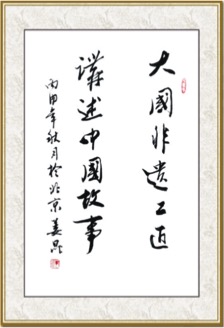 大國非遗工匠
講述中國故事
丙申年秋月於北京姜昆